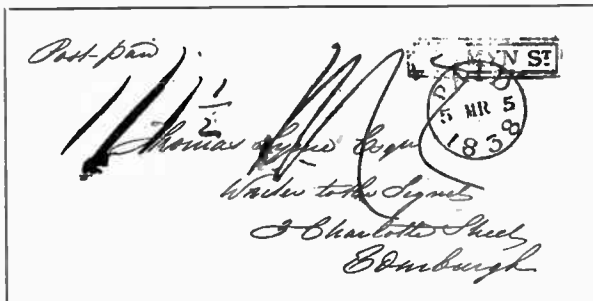 Post-paid
1/1½
MYN ST
PAID
5 MR 5
1838
Thomas Esqr
Writer to the Signet
3 Charlotte Street
Edinburgh